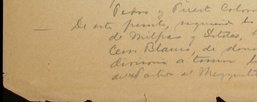 Pedro y Puerto Colom
De este punto, siguiendo los
de Milpas y Sitios,
Cerro Blanco, de don
divisoria a tomar l
del Partido al Mezquital